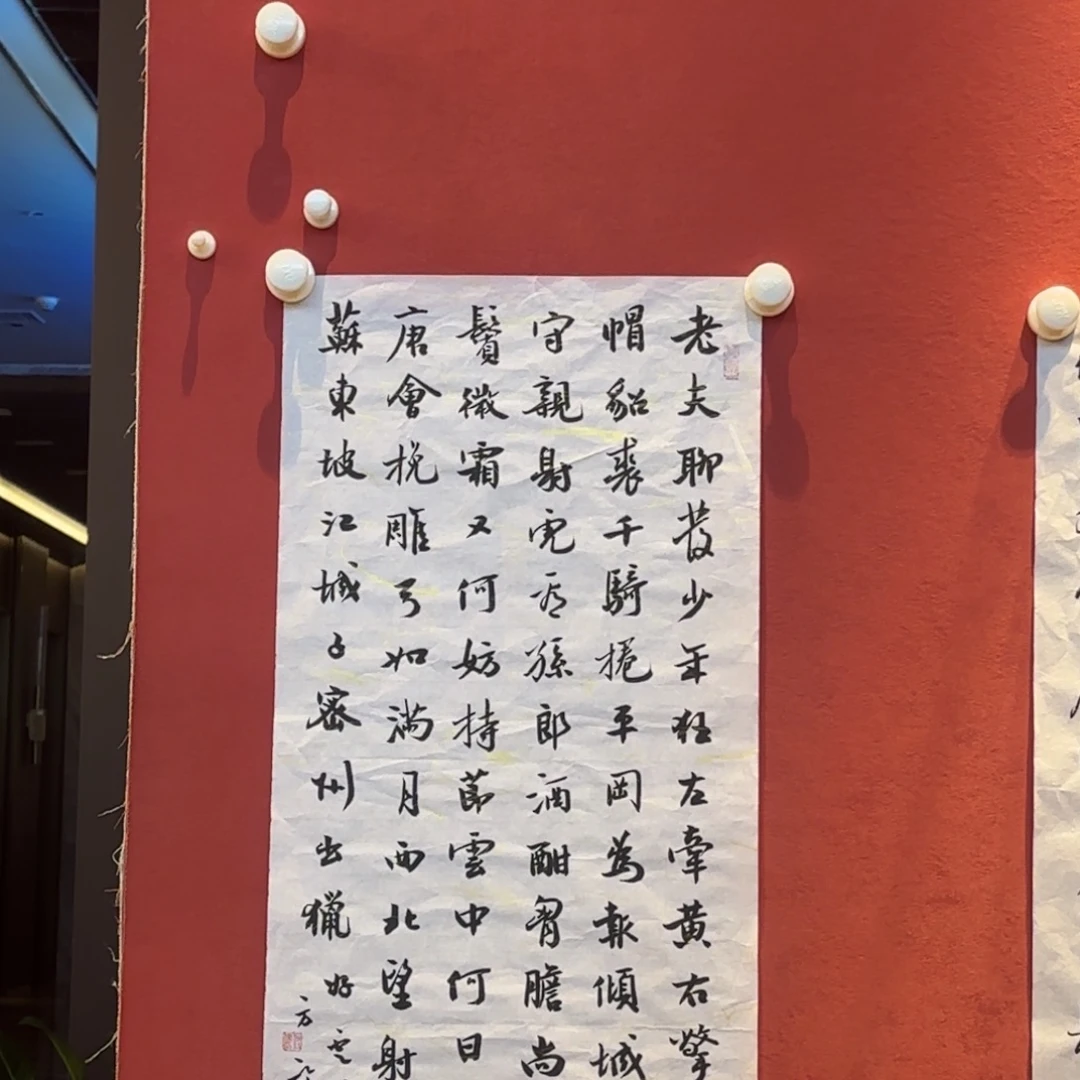 老夫聊發少年狂左牽黃右擎
帽貂裘千騎捲平岡為報傾城
守親射虎看孫郎酒酣胷膽尚
鬢微霜又何妨持節雲中何日
唐會挽雕弓如滿月西北望射
蘇東坡江城子密州出獵